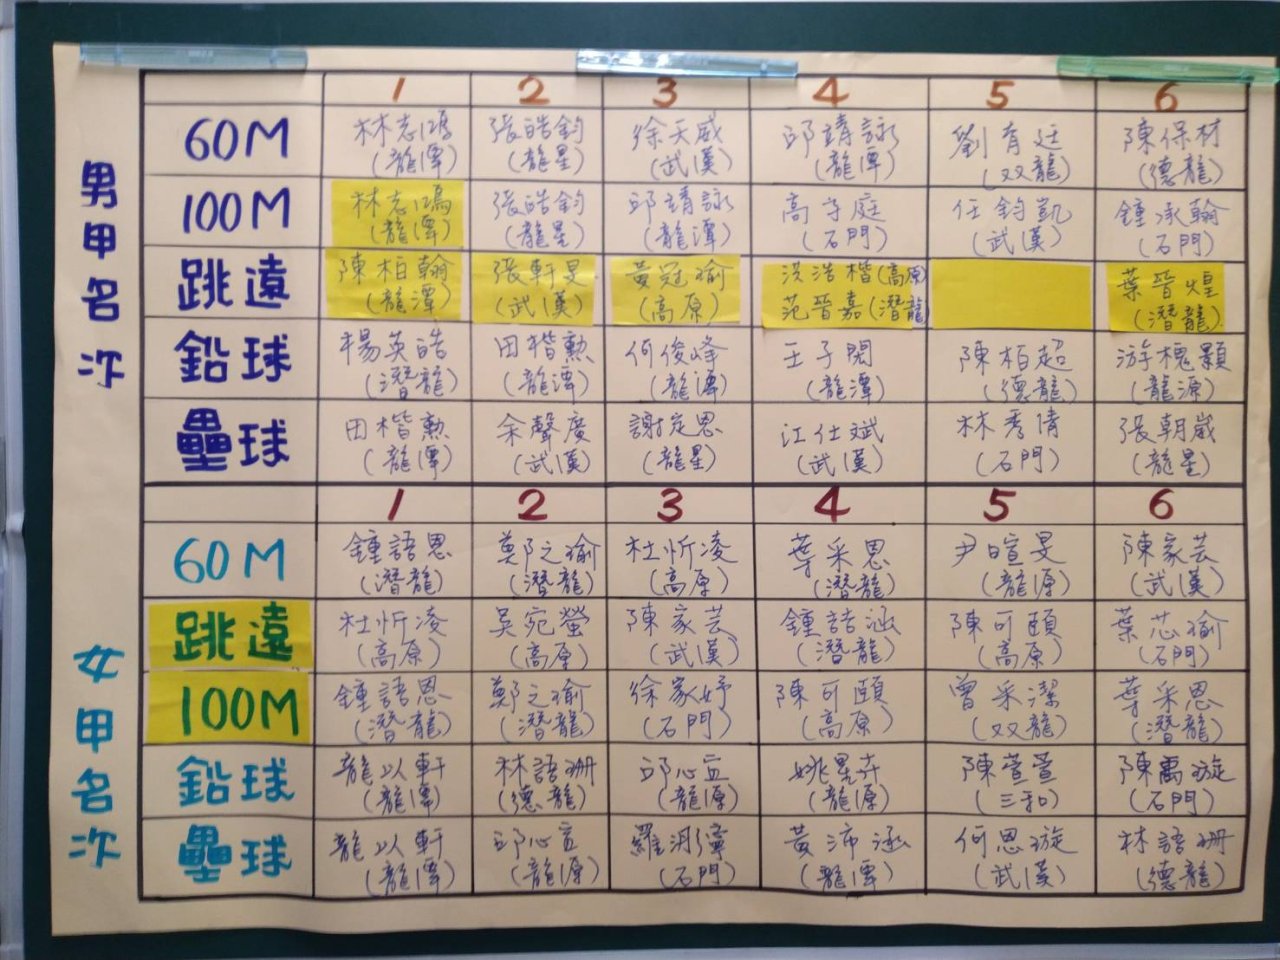 男甲名次
1 2 3 4 5 6
60M 林志鴻 張皓鈞 徐天威 邱靖詠 劉宥廷 陳保材
(龍潭) (龍星) (武漢) (龍潭) (双龍) (德龍)
100M 林志鴻 張皓鈞 邱靖詠 高子庭 任鈞凱 鍾承翰
(龍潭) (龍星) (龍潭) (石門) (武漢) (石門)
跳遠 陳柏翰 張軒旻 黃冠瑜 洪浩楷(高原) 葉晉煌
(龍潭) (武漢) (高原) 范晉嘉(潛龍) (潛龍)
鉛球 楊英皓 田楷勲 何俊峰 王子閎 陳柏超 游槐顥
(潛龍) (龍潭) (龍潭) (龍潭) (德龍) (龍源)
壘球 田楷勲 余聲廣 謝定恩 江仕斌 林秀倩 張朝崴
(龍潭) (武漢) (龍星) (武漢) (石門) (龍星)
女甲名次
1 2 3 4 5 6
60M 鍾語恩 鄭之瑜 杜忻凌 葉采恩 尹暄旻 陳家芸
(潛龍) (潛龍) (高原) (潛龍) (龍源) (武漢)
跳遠 杜忻凌 吳宛螢 陳家芸 鍾語涵 陳可頤 葉芯瑜
(高原) (高原) (武漢) (潛龍) (高原) (石門)
100M 鍾語恩 鄭之瑜 徐家妤 陳可頤 曾采潔 葉采恩
(潛龍) (潛龍) (石門) (高原) (双龍) (潛龍)
鉛球 龍以軒 林語珊 邱心立 姚星卉 陳萱萱 陳禹璇
(龍潭) (德龍) (龍源) (龍源) (三和) (石門)
壘球 龍以軒 邱心立 羅 黃沛涵 何恩璇 林語珊
(龍潭) (龍源) (石門) (龍潭) (武漢) (德龍)